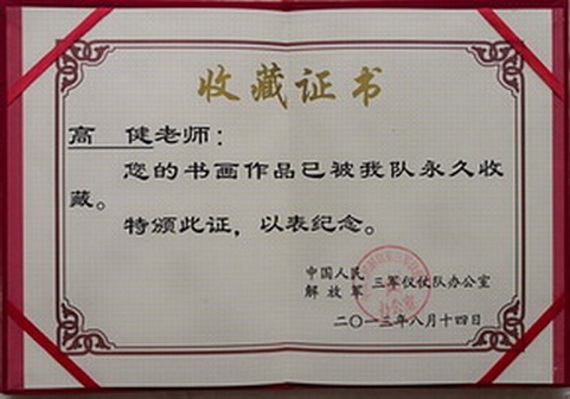 收藏证书
高 健老师：
您的书画作品已被我队永久收
藏。
特颁此证，以表纪念。
中国人民
解放军 三军仪仗队办公室
二〇一三年八月十四日